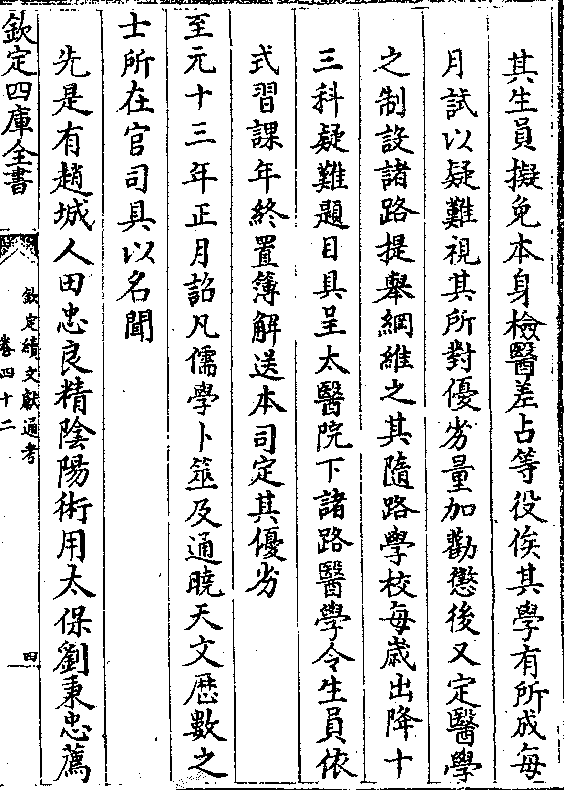 其生員擬免本身檢醫差占等役俟其學有所成每
月試以疑難視其所對優劣量加勸懲後又定醫學
之制設諸路提舉綱維之其隨路學校每歲出降十
三科疑難題目具呈太醫院下諸路醫學令生員依
式習課年終置簿解送本司定其優劣
至元十三年正月詔凡儒學卜筮及通曉天文歷數之
士所在官司具以名聞
先是有趙城人田忠良精陰陽術用太保劉秉忠薦
欽定四庫全書
欽定續文獻通考
卷四十二
四